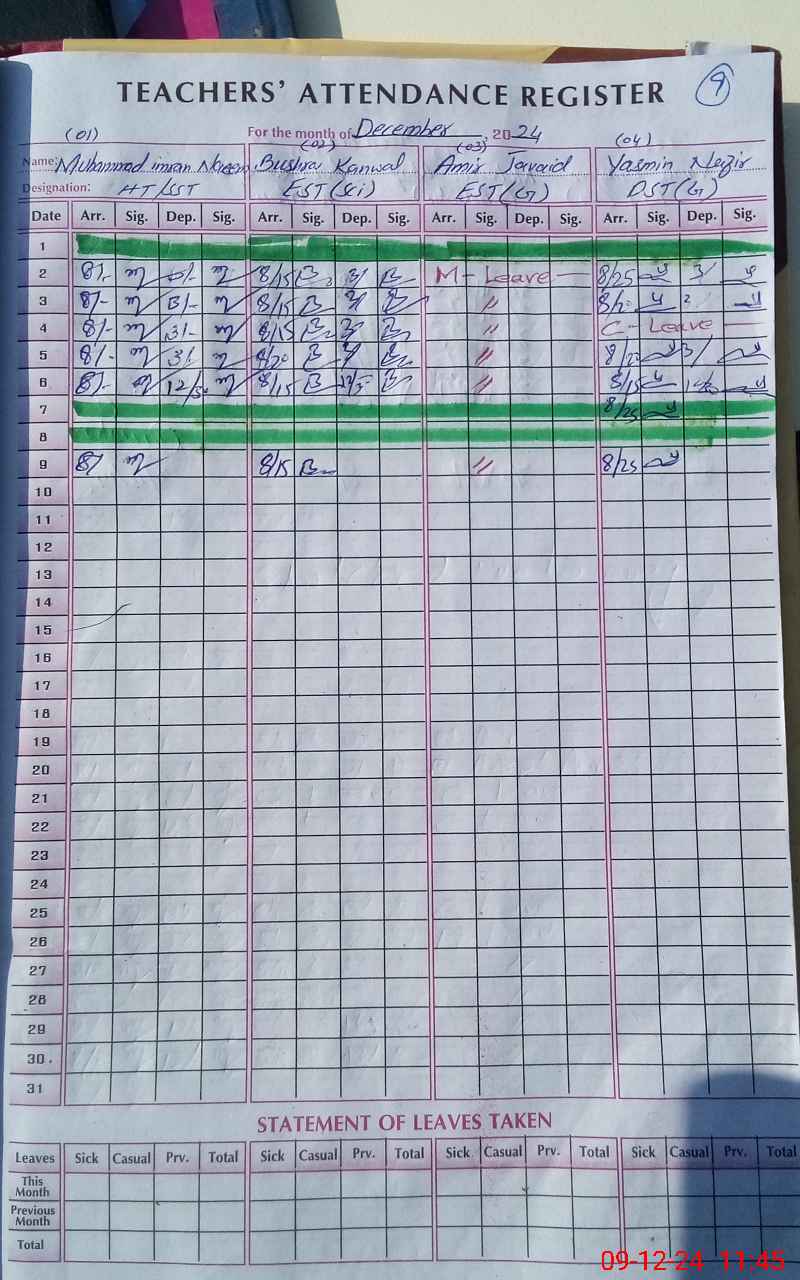 TEACHERS' ATTENDANCE REGISTER 9
For the month of December, 2024
(01) (02) (03) (04)
Name: Muhammad imran Naeem Bushra Kanwal Amir Javaid Yasmin Nazir
Designation: HT/SST EST(Sci) EST(G)
Date Arr. Sig. Dep. Sig. Arr. Sig. Dep. Sig. Arr. Sig. Dep. Sig. Arr. Sig. Dep. Sig.
1
2 8/- 8/15 3/ M-Leave 8/25 3/
3 8/- 3/- 8/15 3/ "
4 8/- 3/- 8/15 3/ " C-Leave
5 8/- 3/- 8/20 " 3/
6 8/- 8/15 " 8/15
7 8/25
8
9 8/ 8/15 " 8/25
10
11
12
13
14
15
16
17
18
19
20
21
22
23
24
25
26
27
28
29
30
31
STATEMENT OF LEAVES TAKEN
Leaves Sick Casual Prv. Total Sick Casual Prv. Total Sick Casual Prv. Total Sick Casual Prv. Total
This Month
Previous Month
Total
09-12-24 11:45